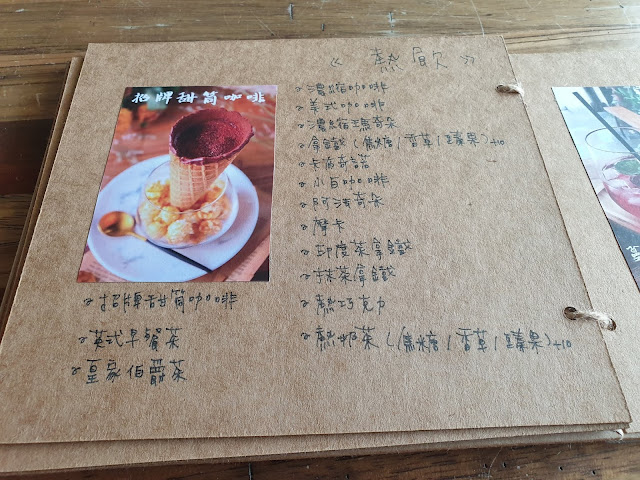 《 熱飲 》
招牌甜筒咖啡
濃縮咖啡
美式咖啡
濃縮瑪奇朵
拿鐵(焦糖/香草/榛果)+10
卡布奇諾
小白咖啡
阿法奇朵
摩卡
印度茶拿鐵
抹茶拿鐵
熱巧克力
熱奶茶(焦糖/香草/榛果)+10
招牌甜筒咖啡
英式早餐茶
皇家伯爵茶